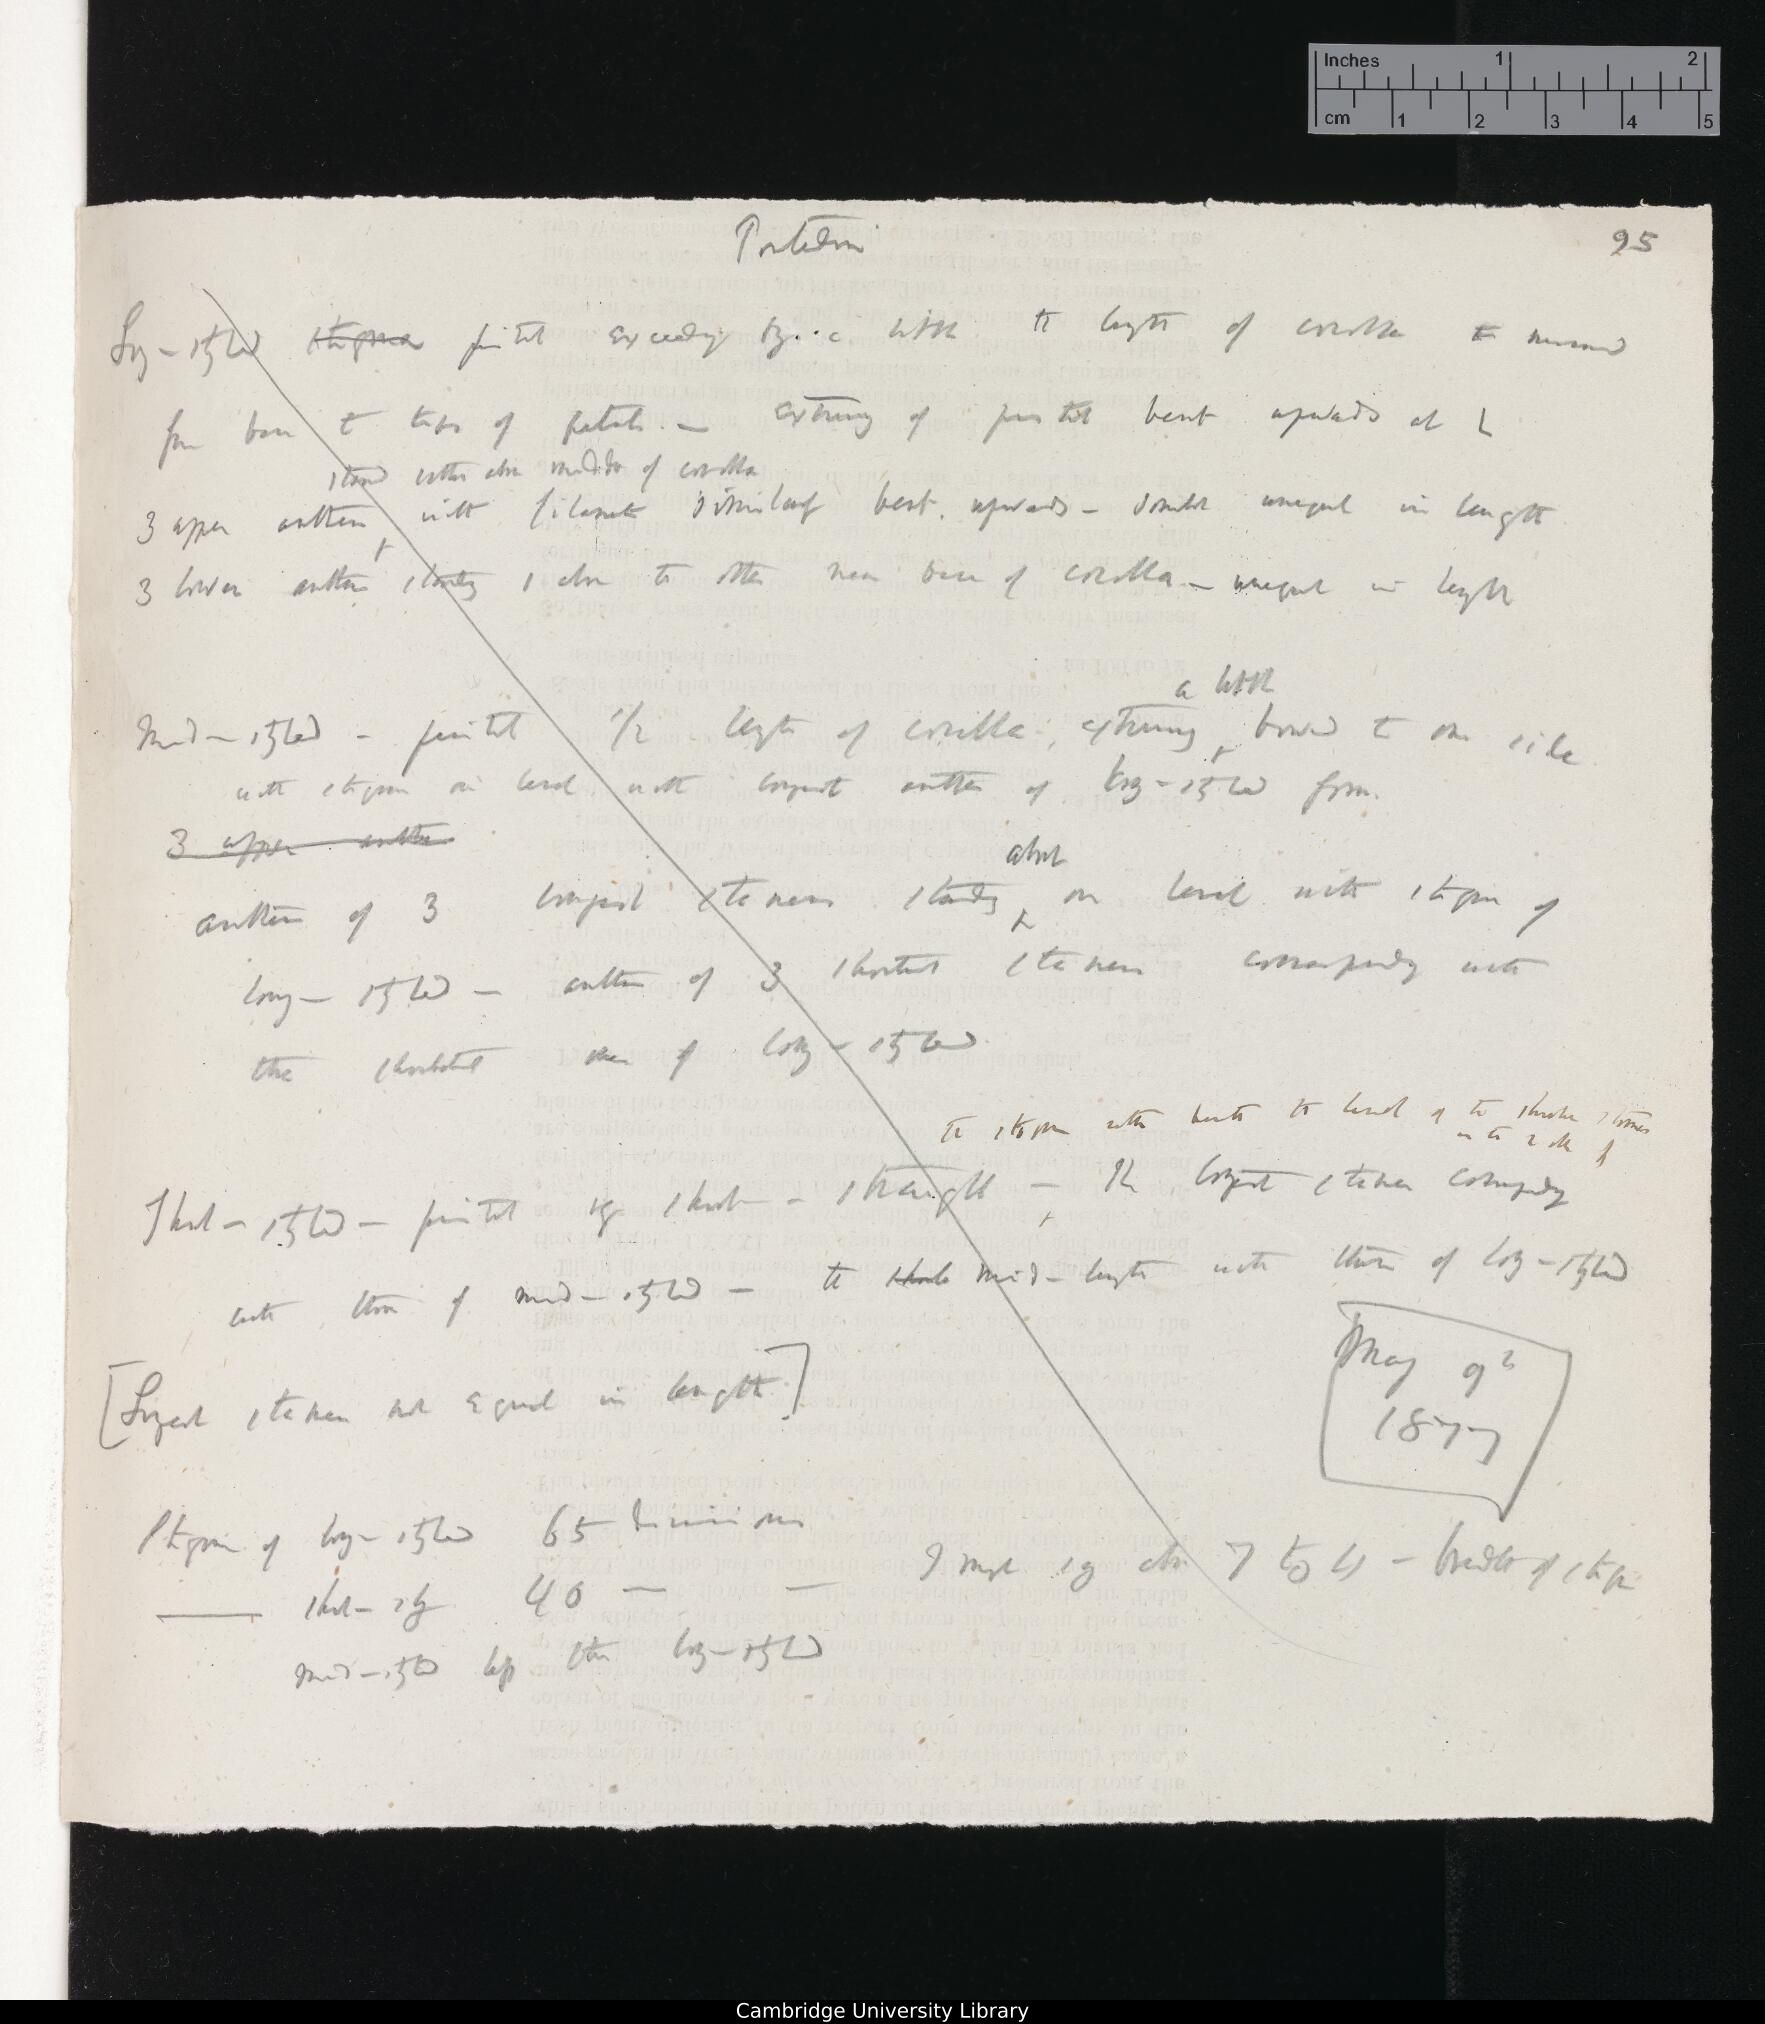 Inches 1 2
cm 1 2 3 4 5
95
Long-styled stigma pistil exceeding by a little the length of corolla measured
from base to tips of petals. — extremity of pistil bent upwards at L
stand rather above middle of corolla
3 upper anthers with filaments similarly bent upwards — unequal in length
3 lower anthers standing 1 above the other near base of corolla — unequal in length
a little
Mid-styled — pistil 1/2 length of corolla, extremity bowed to one side
with stigma on level with longest anthers of long-styled form.
3 upper anthers
about
anthers of 3 longest stamens standing on level with stigma of
long-styled — anthers of 3 shortest stamens corresponding with
the shortest of long-styled
the stigma rather beneath the level of the shorter stamens
in the 2 other
Short-styled — pistil short — straight — The longest stamens corresponding
with those of mid-styled — the mid-length with those of long-styled
[Longest stamens not equal in length]
May 9
1877
Stigma of long-styled 65 divisions
— short-sty 40 — —
mid-styled less than long-styled
7 to 4 — breadth of stigma
Cambridge University Library